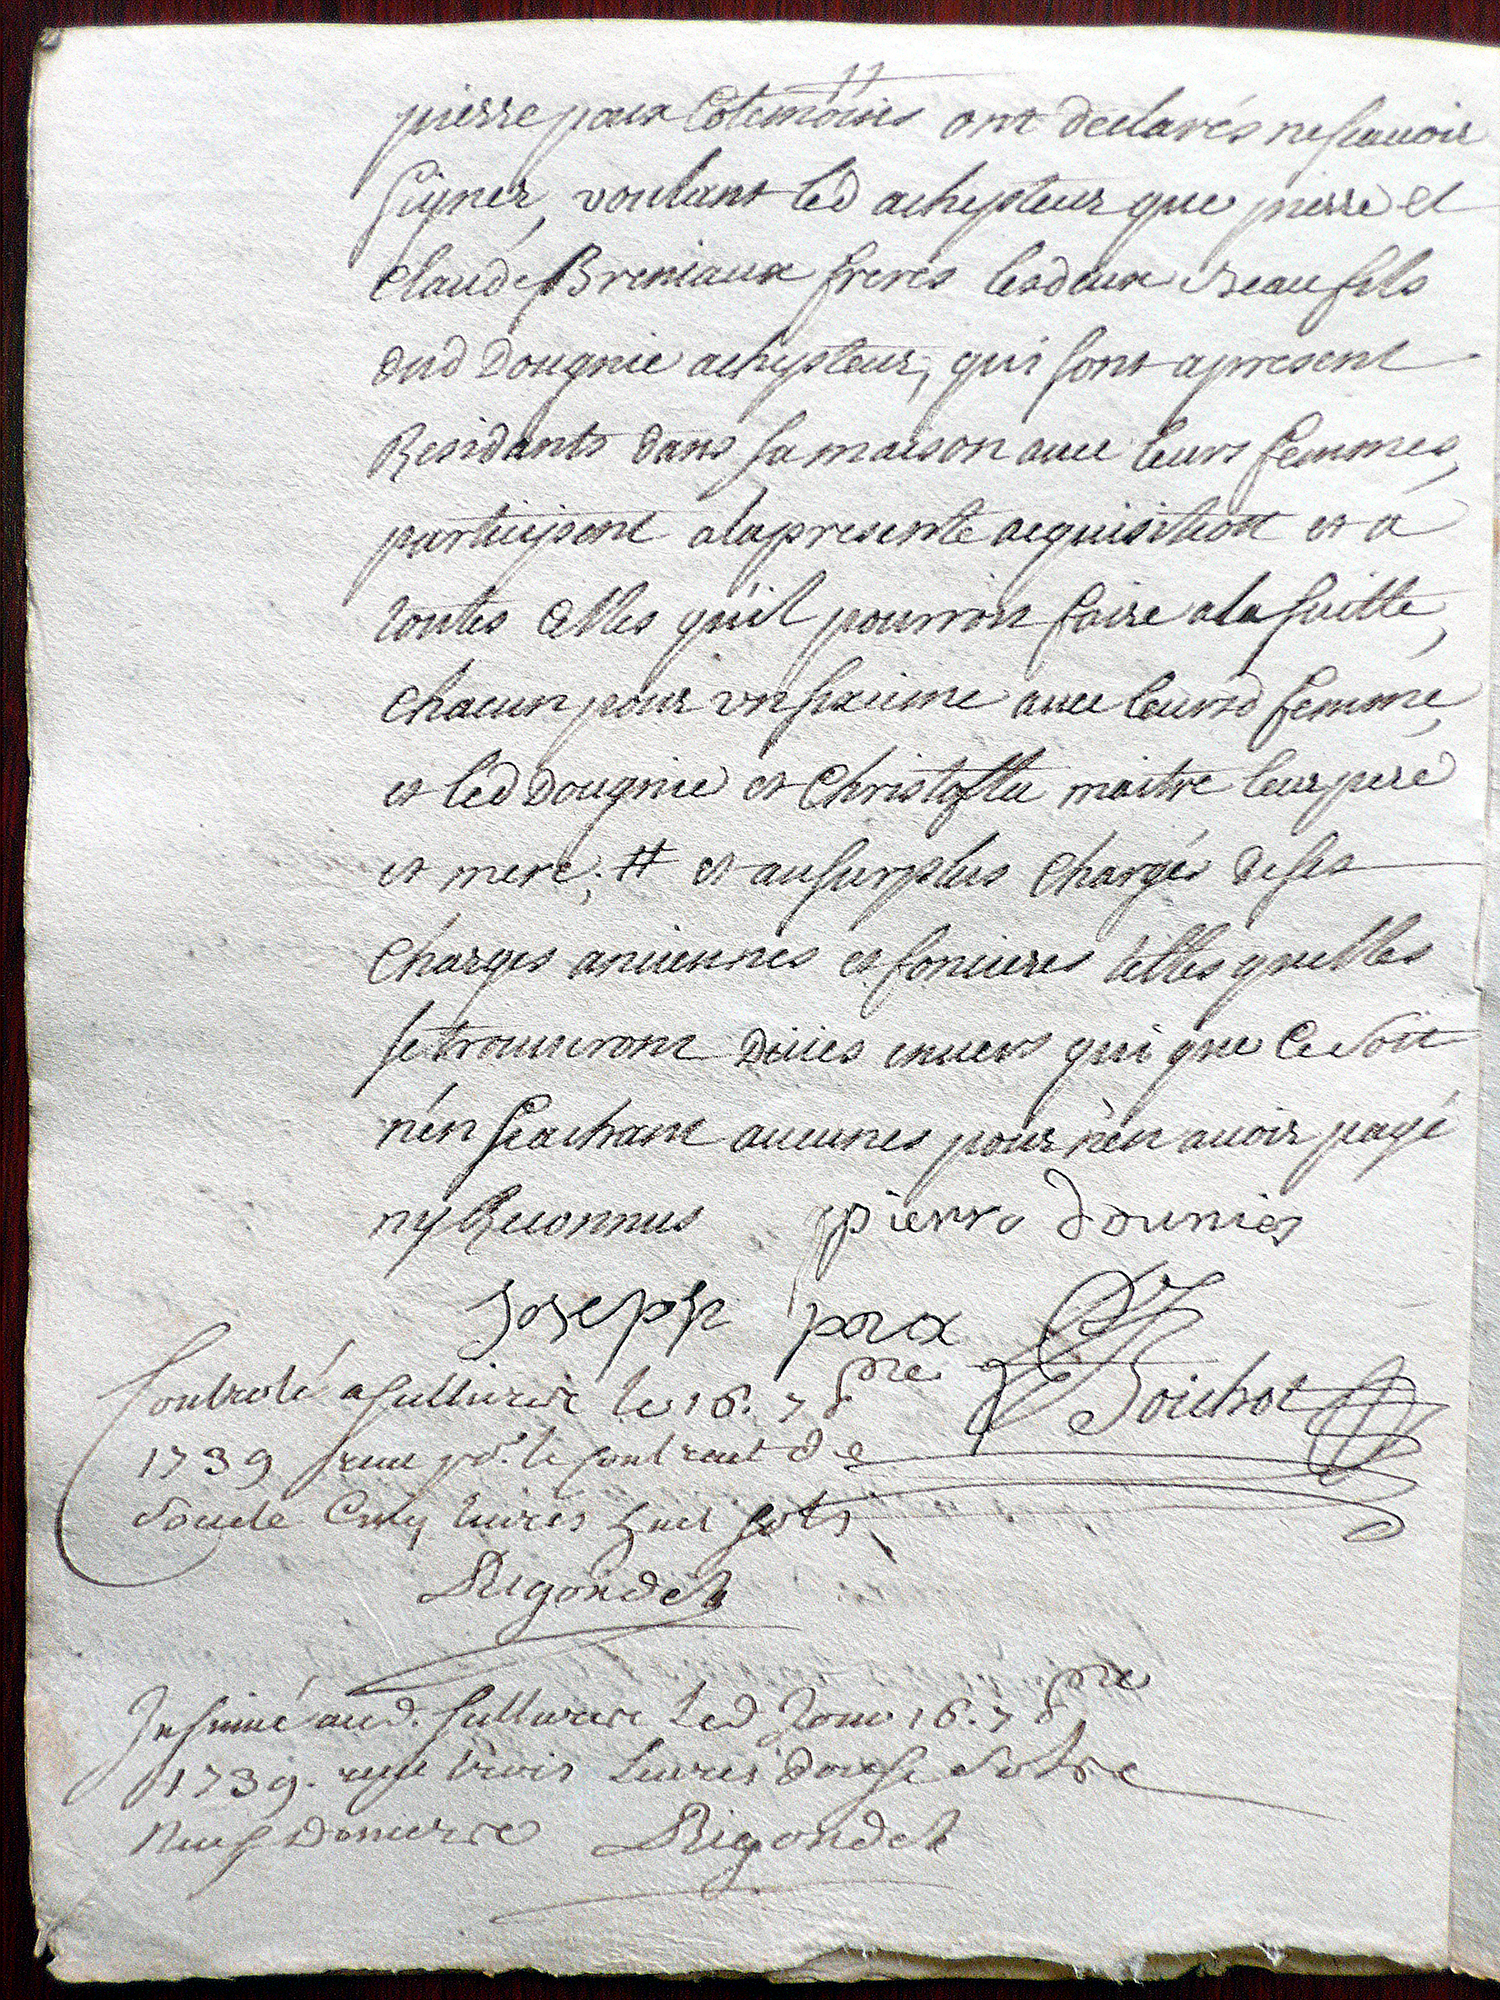 pierre poux Cotemoins ont declarés nescavoir
signer, voulant led achepteur que pierre et
claude Breniaux freres lesdeux Beau fils
dud Dougnie achepteur, qui sont apresent
Residants dans sa maison avec leurs femmes,
participent alapresente acquisition et a
toutes celles qu'il pourront faire ala suitte,
chacun pour un sixieme avec leursd femme,
et led Dougnie et Christoflle maitre leur pere
et mere; # et ausurplus chargés deses
charges anciennes et foncieres telles quelles
se trouveront Dües envers qui que Ce soit
n'en scachant aucunes pour n'en avoir payé
ny Reconnus pierre dounier
Joseph poux
Controlé a Sellieres le 16. 7bre Boichot
1739 receu pr. le contract de
Soude Cinq livres huit sols
Rigondet
Insinué aud. Sellieres Led Jour 16. 7bre
1739. reçu trois Livres douse Sols
Neuf Deniers Rigondet